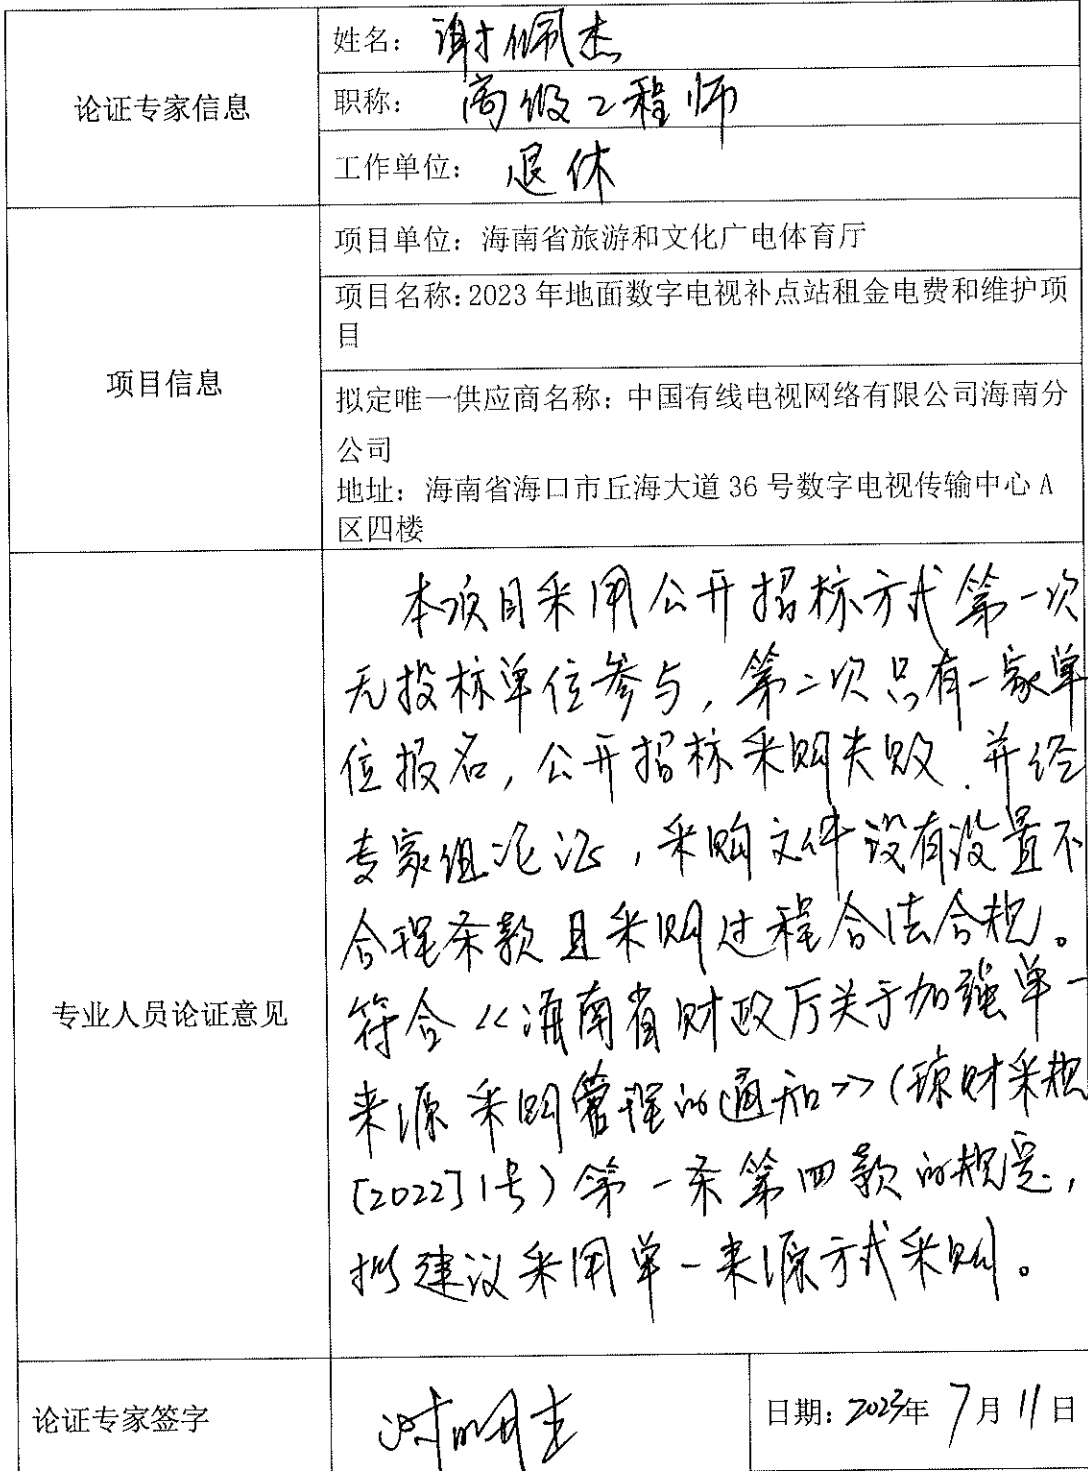 论证专家信息
姓名：谢佩杰
职称：高级工程师
工作单位：退休
项目信息
项目单位：海南省旅游和文化广电体育厅
项目名称：2023年地面数字电视补点站租金电费和维护项
目
拟定唯一供应商名称：中国有线电视网络有限公司海南分
公司
地址：海南省海口市丘海大道36号数字电视传输中心A
区四楼
专业人员论证意见
本项目采用公开招标方式第一次
无投标单位参与，第二次只有一家单
位报名，公开招标采购失败．并经
专家组论证，采购文件没有设置不
合理条款且采购过程合法合规。
符合《海南省财政厅关于加强单一
来源采购管理的通知》（琼财采规
[2022]1号）第一条第四款的规定，
拟建议采用单一来源方式采购。
论证专家签字
日期：2023年7月11日